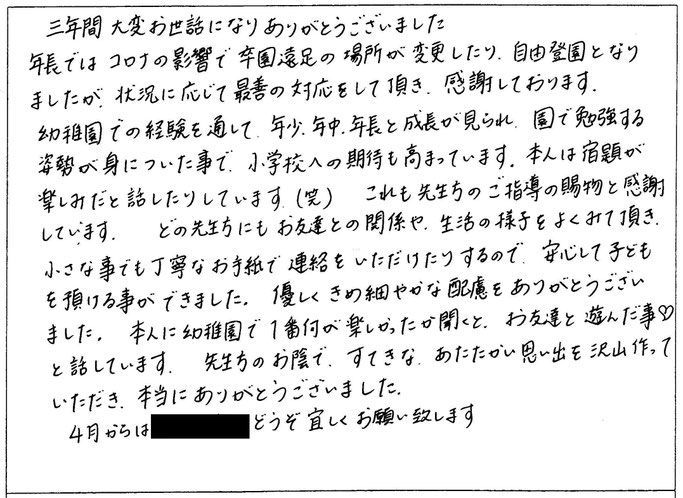 三年間大変お世話になりありがとうございました
年長ではコロナの影響で卒園遠足の場所が変更したり、自由登園となり
ましたが、状況に応じて最善の対応をして頂き、感謝しております。
幼稚園での経験を通して、年少、年中、年長と成長が見られ、園で勉強する
姿勢が身についた事で、小学校への期待も高まっています。本人は宿題が
楽しみだと話したりしています(笑) これも先生方のご指導の賜物と感謝
しています。 どの先生方にもお友達との関係や、生活の様子をよくみて頂き、
小さな事でも丁寧なお手紙で連絡をいただけたりするので、安心して子ども
を預ける事ができました。優しくきめ細やかな配慮をありがとうござい
ました。本人に幼稚園で1番何が楽しかったか聞くと、お友達と遊んだ事♡
と話しています。 先生方のお陰で、すてきな、あたたかい思い出を沢山作って
いただき、本当にありがとうございました。
4月からは どうぞ宜しくお願い致します